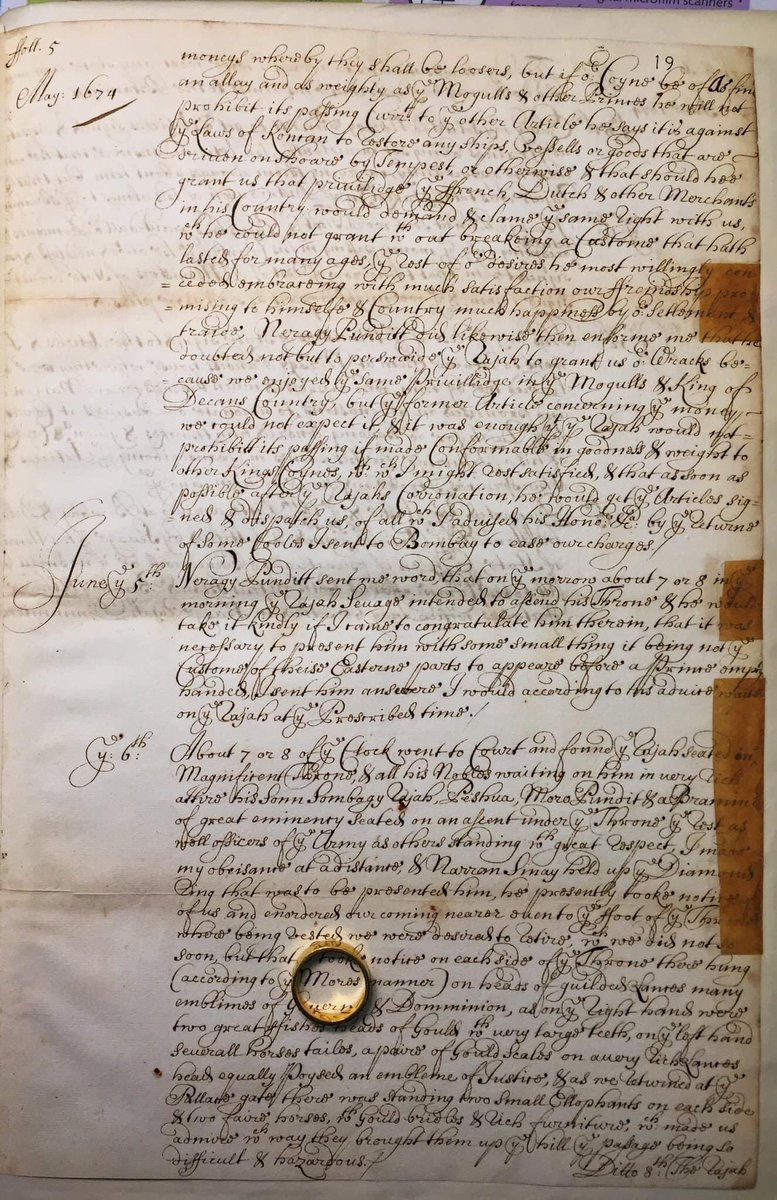 ffoll. 5
19
May: 1674
moneys whereby they shall be loosers, but if oʳ Coyne be of as fine
an allay and as weighty as yᵉ Mogulls & other Princes he will not
prohibit its passing Currᵗ to yᵉ other Article he says it is against
yᵉ Laws of Konkan to restore any ships, vessells or goods that are
driven on shoare by Tempest, or otherwise & that should hee
grant us that priviledge yᵉ French, Dutch & other Merchants
in his Country would demand & clame yᵉ same right with us,
wᶜʰ he could not grant wᵗʰ out breakeing a Custome that hath
lasted for many ages, yᵉ rest of oʳ desires he most willingly con
=ceded embraceing with much satisfaction our freindship pro
=mising to himselfe & Country much happiness by oʳ Setlement &
traide, Neragy Punditt did likewise then enforme me that he
doubted not but to perswaide yᵉ Rajah to grant us oʳ Wracks be=
=cause we enjoyed yᵉ same Privillidge in yᵉ Mogulls & King of
Decans Country, but yᵉ former Article concerning yᵉ money
we could not expect it, & it was enough yᵗ yᵉ Rajah would not
prohibitt its passing if made Conformable in goodness & weight to
other Kings Coynes, wᵗʰ wᶜʰ I might rest satisfied, & that as soon as
possible after yᵉ Rajahs Coronation, he would get yᵉ Articles sig=
=ned & dispatch us, of all wᶜʰ I advised his Honoʳ &cᵃ by yᵉ returne
of some Cooles I sent to Bombay to ease our charges /
June yᵉ 5ᵗʰ:
Neragy Punditt sent me word, that on yᵉ morrow about 7 or 8 in yᵉ
morning yᵉ Rajah Sevage intended to ascend his Throne & he would
take it kindly if I came to congratulate him therein, that it was
necessary to present him with some small thing it being not yᵉ
Custome of theise Easterne parts to appeare before a Prince empty
handed, I sent him answere I would according to his advice waite
on yᵉ Rajah at yᵉ Prescribed time /
yᵉ: 6ᵗʰ:
About 7 or 8 of yᵉ Clock went to Court and found yᵉ Rajah seated in
Magnificent Throne, & all his Nobles waiting on him in very rich
attire his Sonn Sombagy Rajah, Peshua, Moro Pundit & a Bramine
of great eminency seated on an ascent under yᵉ Throne yᵉ rest as
well officers of yᵉ Army as others standing wᵗʰ great respect, I made
my obeisance at a distance, & Narran Sinay held up yᵉ Diamond
Ring that was to be presented him, he presently tooke notice
of us and enordered our coming nearer even to yᵉ ffoot of yᵉ Throne
where being vested we were desired to retire, wᶜʰ we did not so
soon, but that I took notice on each side of yᵉ Throne there hung
(according to yᵉ Mores manner) on heads of guilded Lances many
emblimes of & Domminion, as on yᵉ right hand were
two great ffishes heads of Gould wᵗʰ very large teeth, on yᵉ left hand
severall horses tailes, a paire of Gould Scales on a very rich Lances
head equally poysed an embleme of Justice, & as we returned at yᵉ
Pallace gate there was standing two small Ellophants on each side
& two faire horses, wᵗʰ Gould bridles & rich furniture, wᶜʰ made us
admire wᶜʰ way they brought them up yᵉ hill yᵉ passage being so
difficult & hazardous /
Ditto 8ᵗʰ: The Rajah